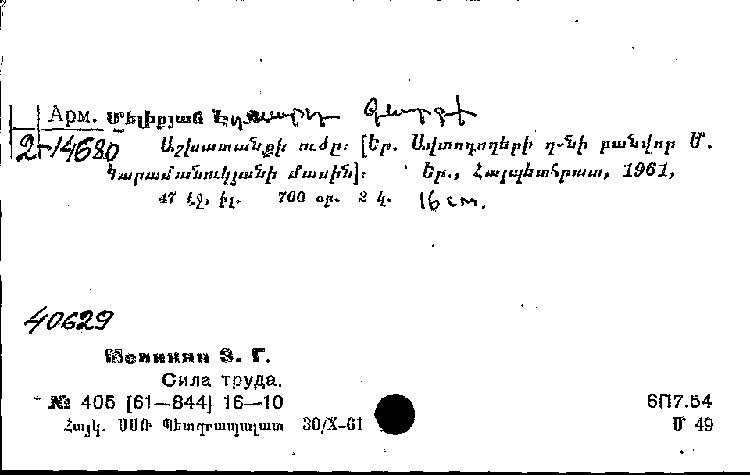 Арм. Մելիքյան Էդուարդ Գևորգի
2-14680 Աշխատանքի ուժը։ [Եր. Ավտոդողերի գ-նի բանվոր Մ.
Կարամանուկյանի մասին]։ Եր., Հայպետհրատ, 1961,
47 էջ, իլ. 700 օր. 2 կ. 16 cm.
40629
Меликян Э. Г.
Сила труда.
№ 405 [61—844] 16—10
6П7.54
Հայկ. ՍՍՌ Պետգրապալատ 30/X-61
Մ 49